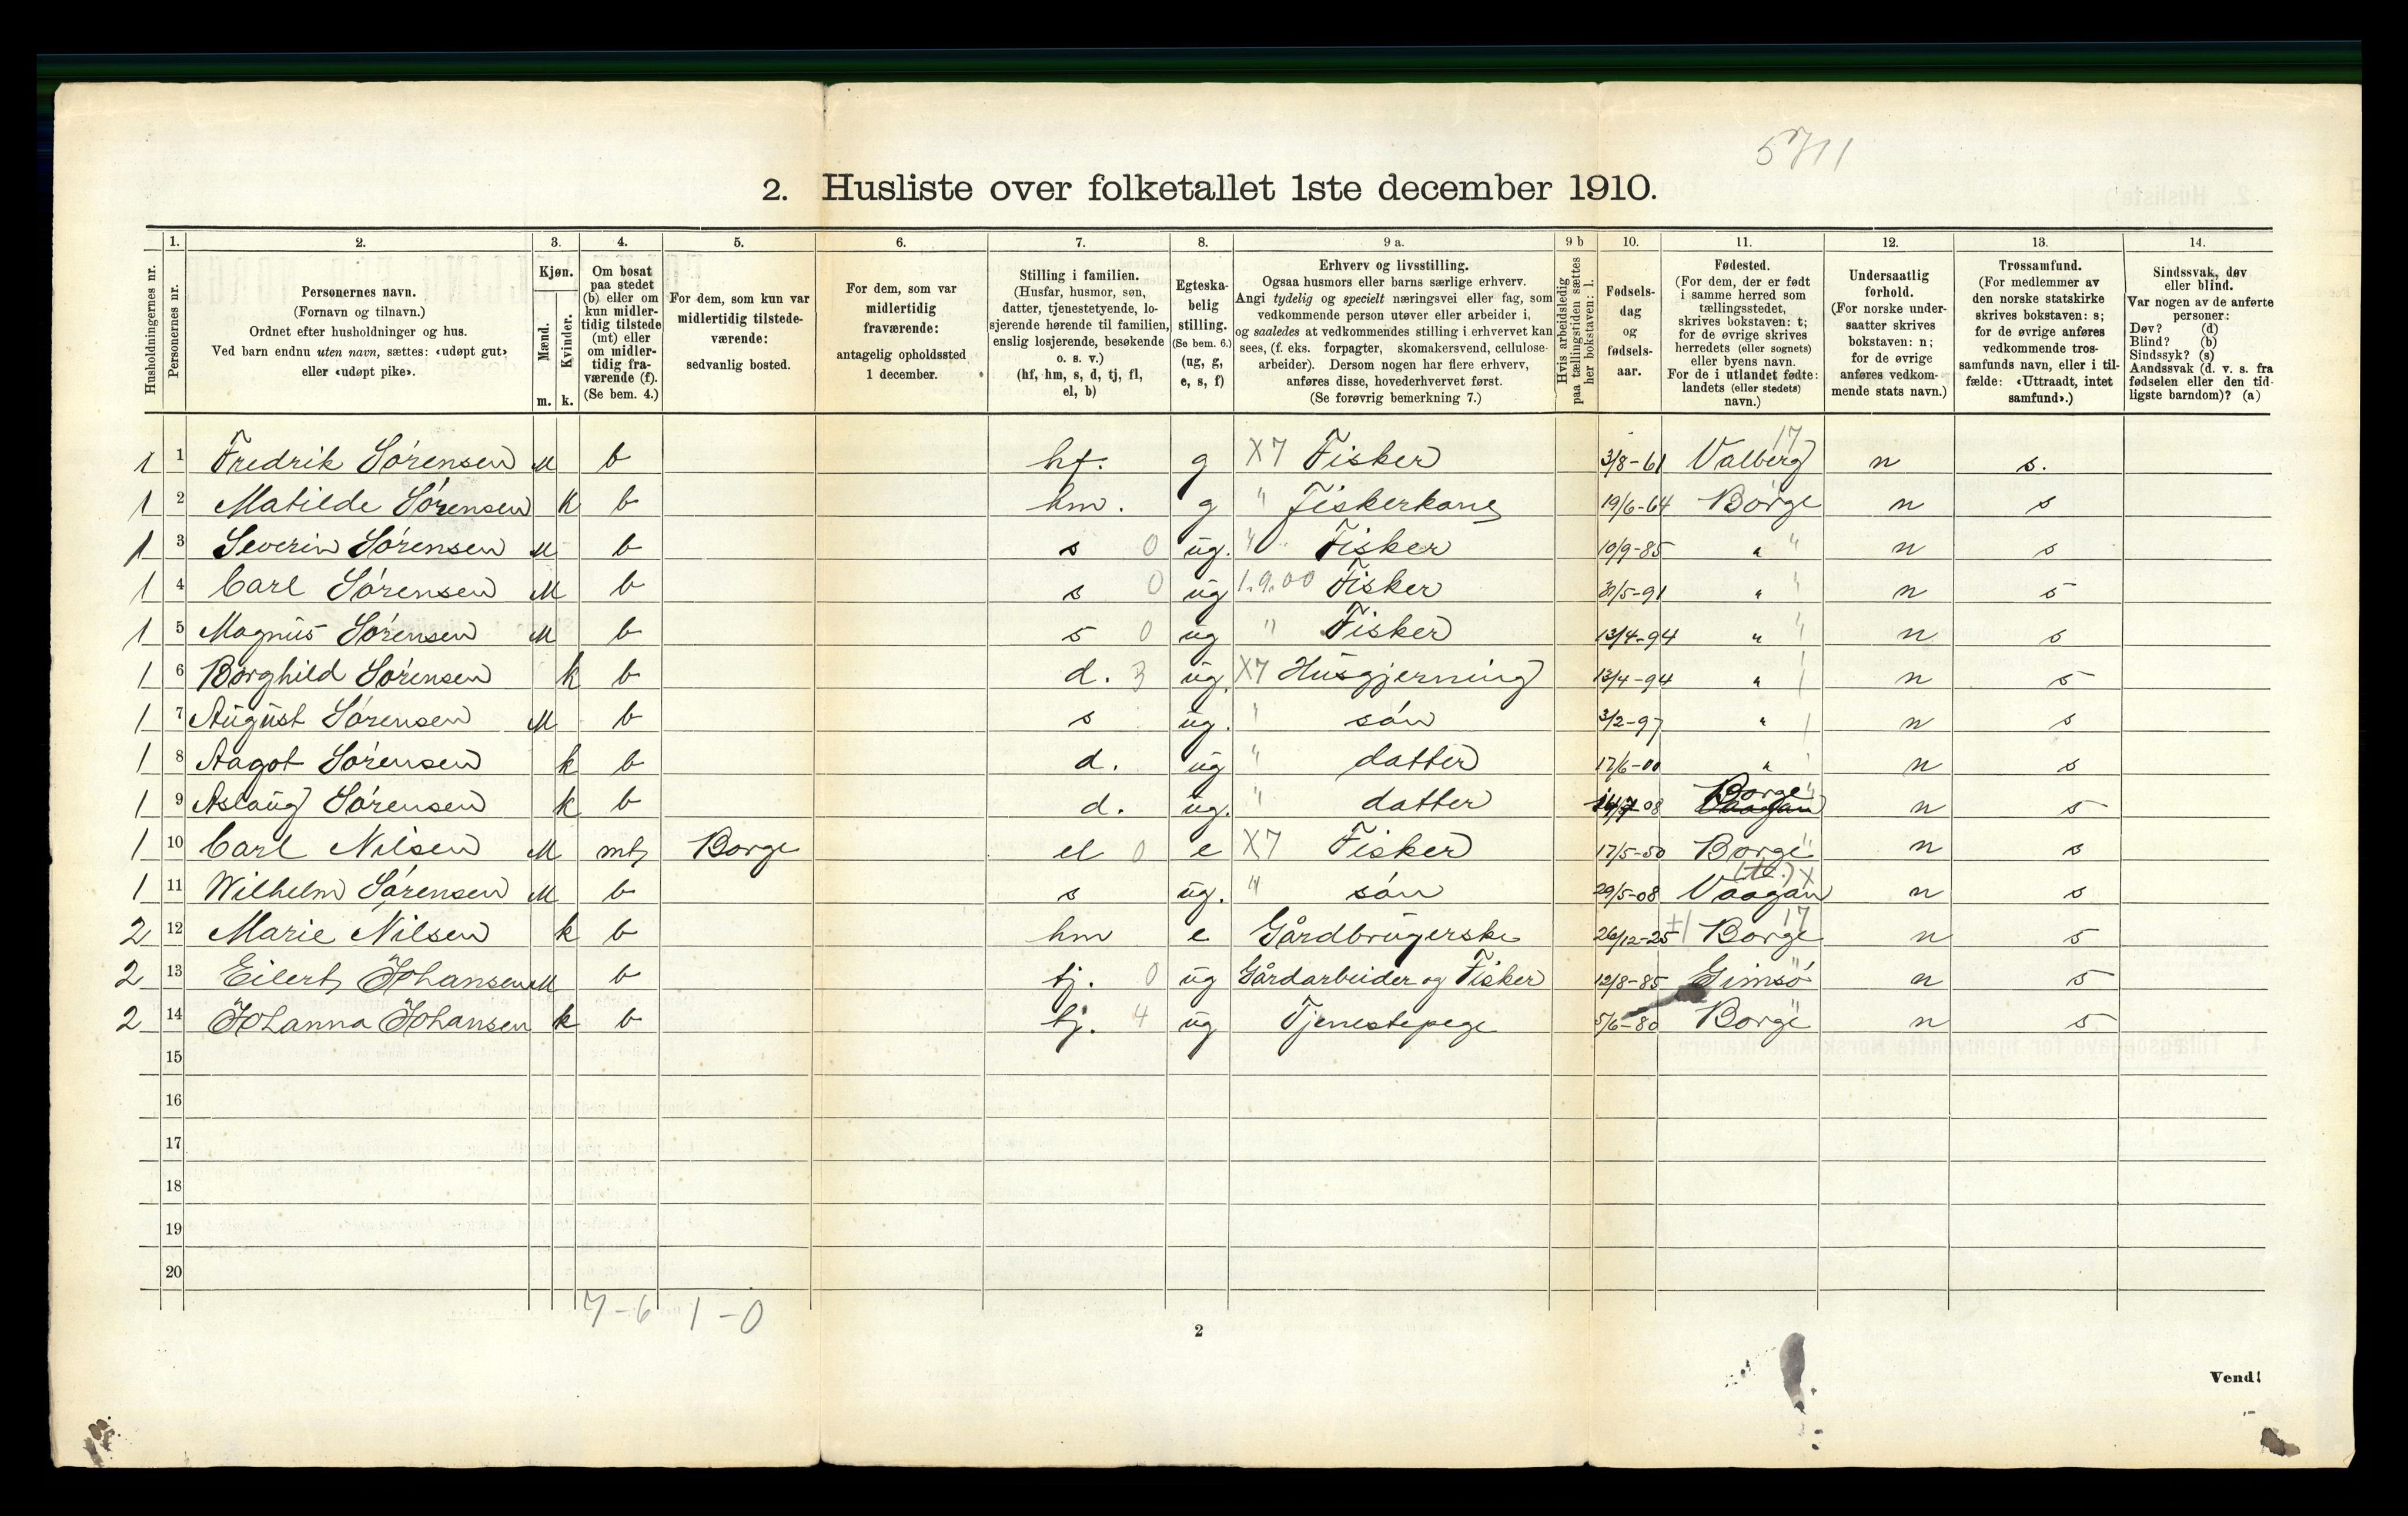 5711
2. Husliste over folketallet 1ste december 1910.
Husholdningernes nr.
1. Personernes nr.
2. Personernes navn. (Fornavn og tilnavn.) Ordnet efter husholdninger og hus. Ved barn endnu uten navn, sættes: «udøpt gut» eller «udøpt pike».
3. Kjøn. Mænd. m. Kvinder. k.
4. Om bosat paa stedet (b) eller om kun midlertidig tilstede (mt) eller om midlertidig fraværende (f). (Se bem. 4.)
5. For dem, som kun var midlertidig tilstedeværende: sedvanlig bosted.
6. For dem, som var midlertidig fraværende: antagelig opholdssted 1 december.
7. Stilling i familien. (Husfar, husmor, søn, datter, tjenestetyende, losjerende hørende til familien, enslig losjerende, besøkende o. s. v.) (hf, hm, s, d, tj, fl, el, b)
8. Egteskabelig stilling. (Se bem. 6.) (ug, g, e, s, f)
9 a. Erhverv og livsstilling. Ogsaa husmors eller barns særlige erhverv. Angi tydelig og specielt næringsvei eller fag, som vedkommende person utøver eller arbeider i, og saaledes at vedkommendes stilling i erhvervet kan sees, (f. eks. forpagter, skomakersvend, cellulosearbeider). Dersom nogen har flere erhverv, anføres disse, hovederhvervet først. (Se forøvrig bemerkning 7.)
9 b Hvis arbeidsledig paa tællingstiden sættes her bokstaven: l.
10. Fødselsdag og fødselsaar.
11. Fødested. (For dem, der er født i samme herred som tællingsstedet, skrives bokstaven: t; for de øvrige skrives herredets (eller sognets) eller byens navn. For de i utlandet fødte: landets (eller stedets) navn.)
12. Undersaatlig forhold. (For norske undersaatter skrives bokstaven: n; for de øvrige anføres vedkommende stats navn.)
13. Trossamfund. (For medlemmer av den norske statskirke skrives bokstaven: s; for de øvrige anføres vedkommende trossamfunds navn, eller i tilfælde: «Uttraadt, intet samfund».)
14. Sindssvak, døv eller blind. Var nogen av de anførte personer: Døv? (d) Blind? (b) Sindssyk? (s) Aandssvak (d. v. s. fra fødselen eller den tidligste barndom)? (a)
1 1 Fredrik Sørensen M b hf. g X7 Fisker 3/8-61 Valberg 17 n s.
1 2 Matilde Sørensen k b hm. g " Fiskerkone 19/6-64 Borge n s
1 3 Severin Sørensen M b s 0 ug. " Fisker 10/9-85 " " n s
1 4 Carl Sørensen M b s 0 ug 1.9.00 Fisker 30/5-91 " " n s
1 5 Magnus Sørensen M b s 0 ug " Fisker 13/4-94 " " n s
1 6 Borghild Sørensen k b d. 3 ug. X7 Husgjerning 13/4-94 " n s
1 7 August Sørensen M b s ug. " søn 3/2-97 " n s
1 8 Aagot Sørensen k b d. ug " datter 17/6-00 " n s
1 9 Aslaug Sørensen k b d. ug. " datter 08 Borge Vaagan n s
1 10 Carl Nilsen M mt Borge el 0 e X7 Fisker 17/5-50 Borge n s
1 11 Wilhelm Sørensen M b s ug. " søn 29/5-08 Vaagan X n s
2 12 Marie Nilsen k b hm e Gårdbrugerske 26/12-25 Borge 17 n s
2 13 Eilert Johansen M b tj. 0 ug Gårdarbeider og Fisker 12/8-85 Gimsø n s
2 14 Johanna Johansen k b tj. 4 ug Tjenestepege 5/6-80 Borge n s
15
16
17
18
19
20
7-6 1-0
2
Vend!